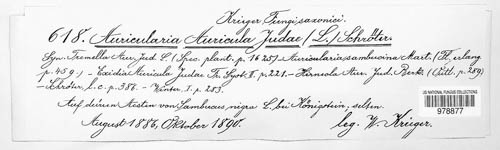 Krieger, Fungi saxonici.
618. Auricularia Auricula Judae (L.) Schröter.
Syn. Tremella Aur. Jud. L. (Spec. plant. p. 1625) – Auricularia sambucina Mart. (Fl. erlang
p. 459) – Exidia Auricula Judae Fr. Syst. II p. 221. – Hirneola Aur. Jud. Berk. (Outl. p. 289)
– Schröter l. c. p. 386. – Winter, I. p. 283.
Auf dürren Aesten von Sambucus nigra L. bei Königstein; selten.
August 1886, Oktober 1890. leg. W. Krieger.
US NATIONAL FUNGUS COLLECTIONS
978877